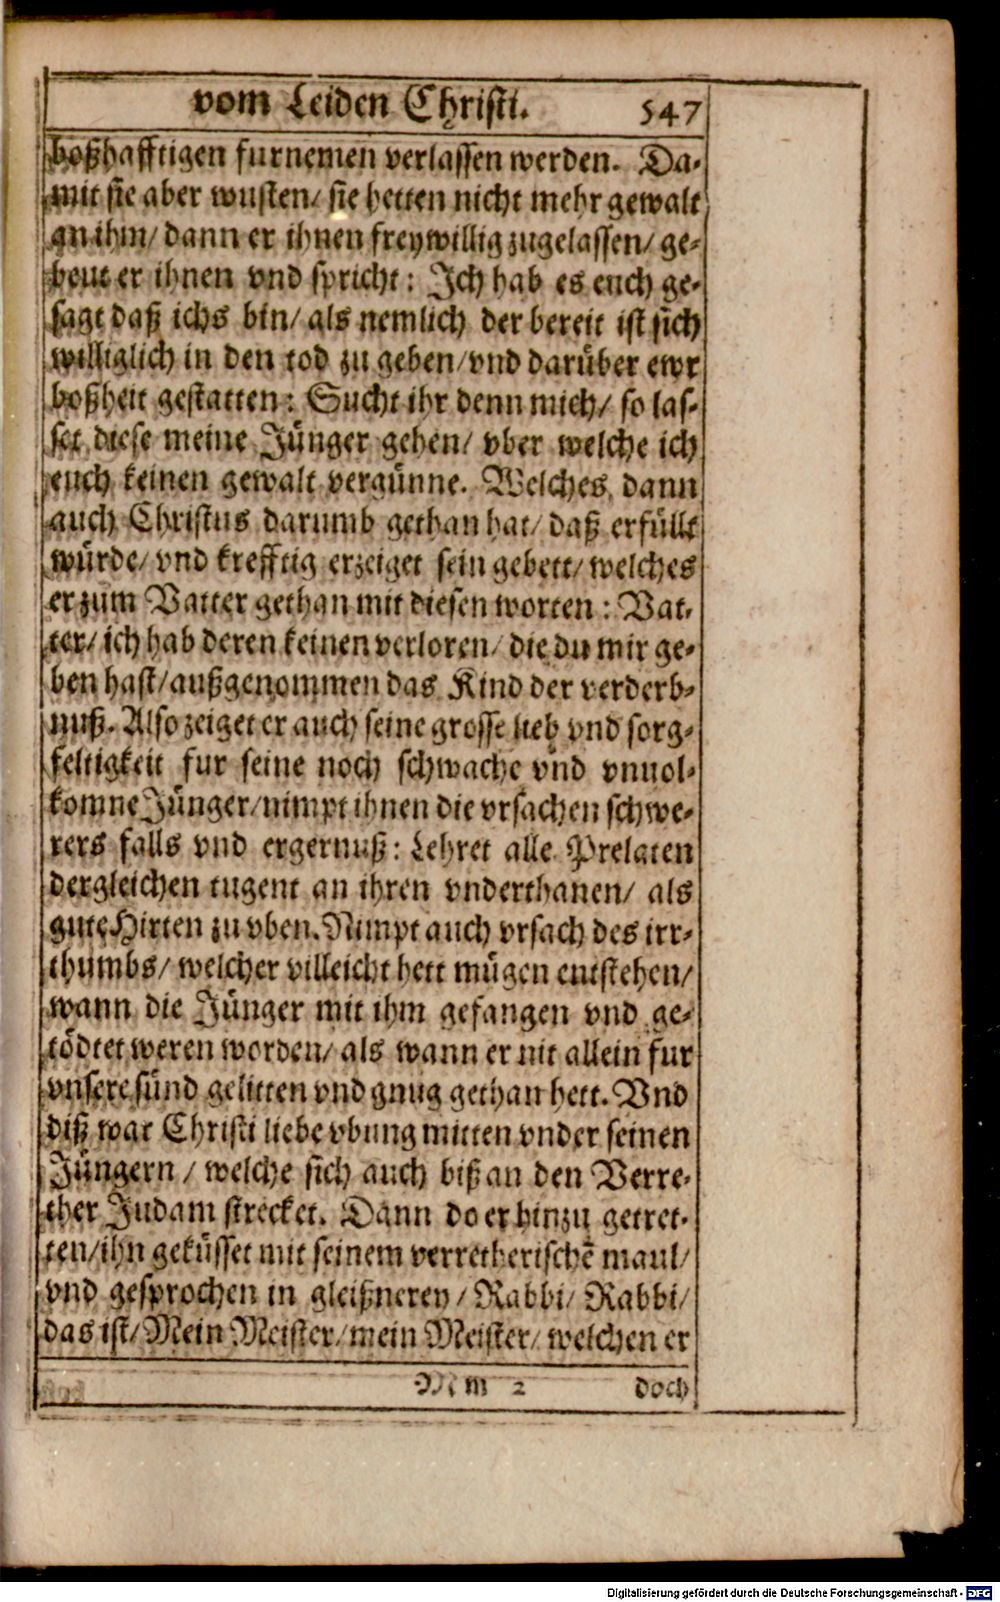 vom Leiden Christi. 547
boßhafftigen furnemen verlassen werden. Da-
mit sie aber wusten/ sie hetten nicht mehr gewalt
an ihm/ dann er ihnen freywillig zugelassen/ ge-
beut er ihnen vnd spricht: Ich hab es euch ge-
sagt daß ichs bin/ als nemlich der bereit ist sich
williglich in den tod zu geben/ vnd darüber ewr
boßheit gestatten: Sucht ihr denn mich/ so las-
set diese meine Jünger gehen/ vber welche ich
euch keinen gewalt vergünne. Welches dann
auch Christus darumb gethan hat/ daß erfüllt
würde/ vnd krefftig erzeiget sein gebett/ welches
er zum Vatter gethan mit diesen worten: Vat-
ter/ ich hab deren keinen verloren/ die du mir ge-
ben hast/ außgenommen das Kind der verderb-
nuß. Also zeiget er auch seine grosse lieb vnd sorg-
feltigkeit fur seine noch schwache vnd vnuol-
komne Jünger/ nimpt ihnen die vrsachen schwe-
rers falls vnd ergernuß: Lehret alle Prelaten
dergleichen tugent an ihren vnderthanen/ als
gute Hirten zu vben. Nimpt auch vrsach des irr-
thumbs/ welcher villeicht hett mügen entstehen/
wann die Jünger mit ihm gefangen vnd ge-
tödtet weren worden/ als wann er nit allein fur
vnsere sünd gelitten vnd gnug gethan hett. Vnd
diß war Christi liebe vbung mitten vnder seinen
Jüngern/ welche sich auch biß an den Verre-
ther Judam strecket. Dann do er hinzu getret-
ten/ ihn geküsset mit seinem verretherischē maul/
vnd gesprochen in gleißnerey/ Rabbi/ Rabbi/
das ist/ Mein Meister/ mein Meister/ welchen er
Mm 2 doch
Digitalisierung gefördert durch die Deutsche Forschungsgemeinschaft - DFG